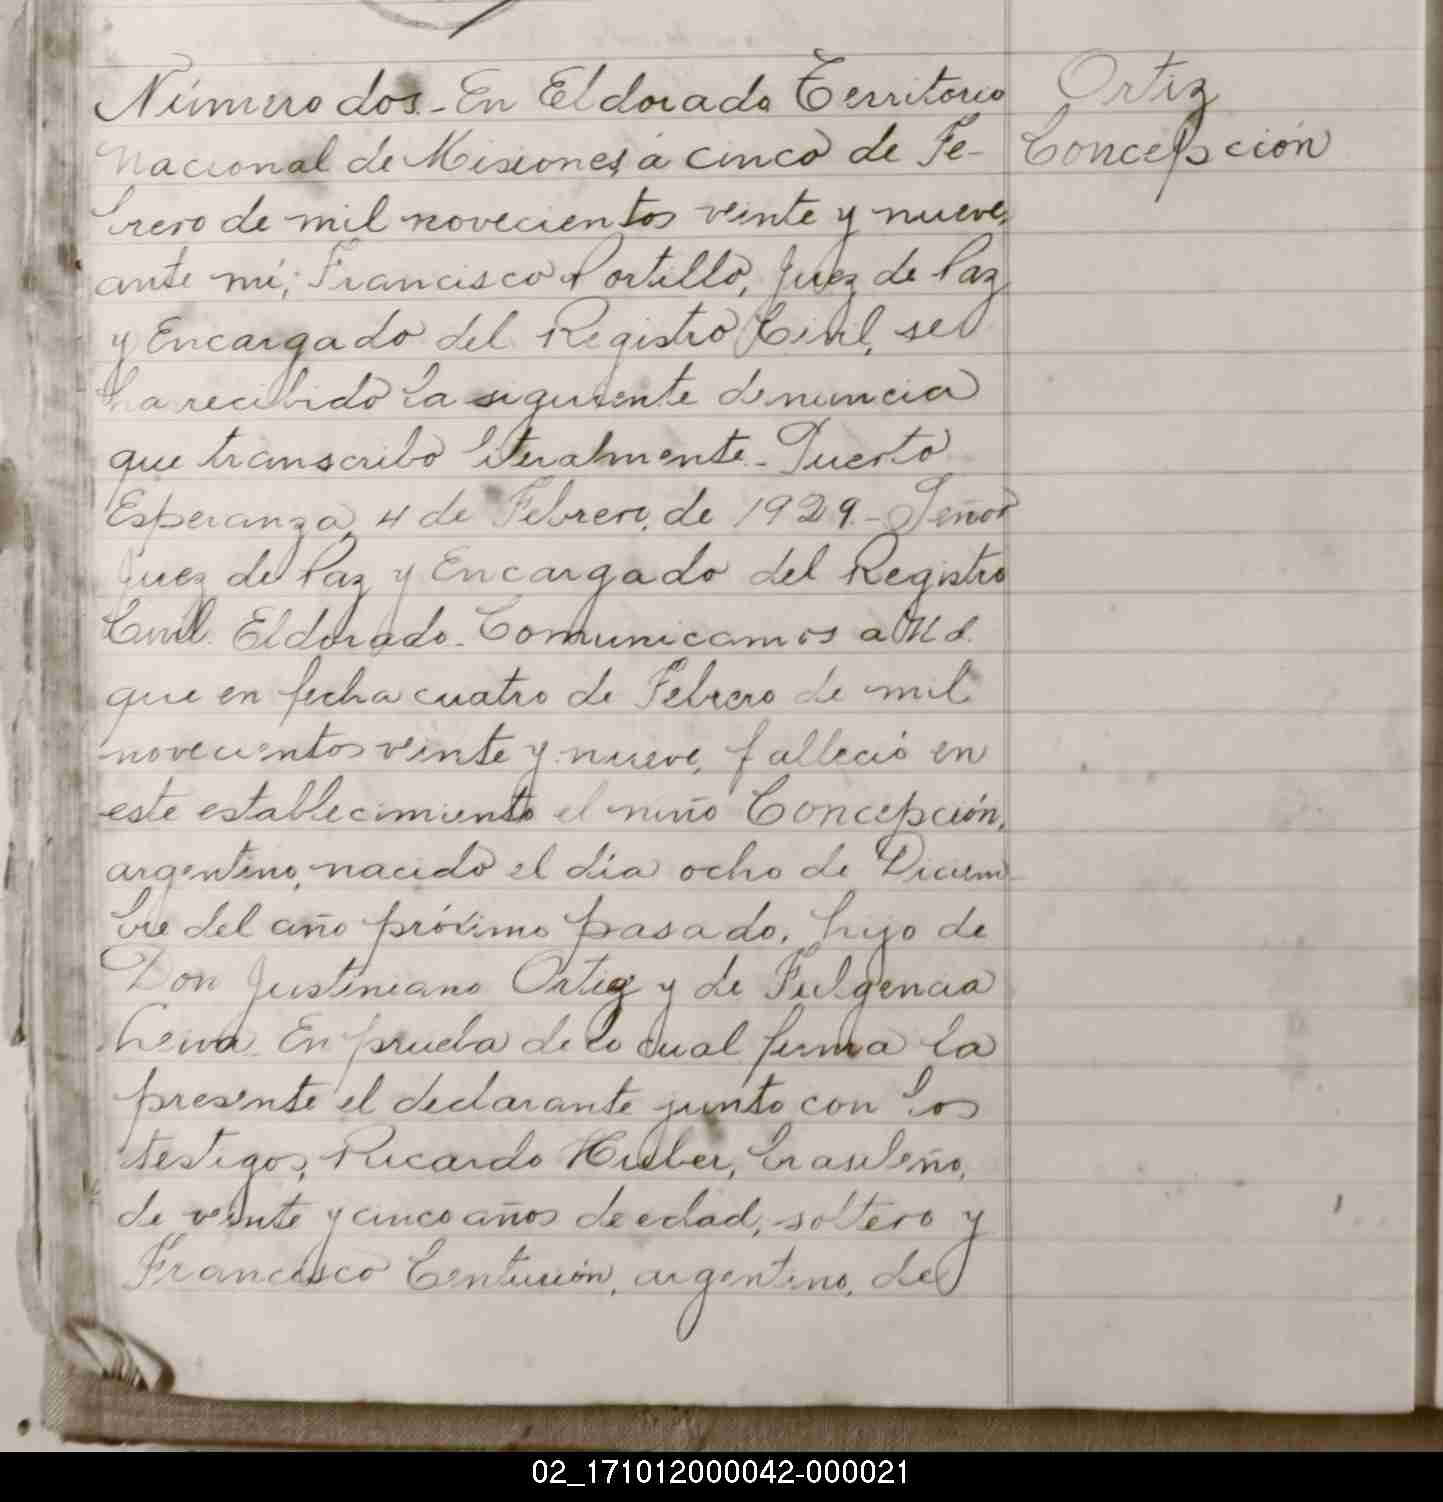 Número dos.- En Eldorado Territorio
Ortiz
Nacional de Misiones, á cinco de Fe-
Concepción
brero de mil novecientos veinte y nueve,
ante mí; Francisco Portillo, Juez de Paz
y Encargado del Registro Civil, se
ha recibido la siguiente denuncia
que transcribo literalmente.- Puerto
Esperanza, 4 de Febrero, de 1929.- Señor
Juez de Paz y Encargado del Registro
Civil. Eldorado.- Comunicamos a Ud.
que en fecha cuatro de Febrero de mil
novecientos veinte y nueve, falleció en
este establecimiento el niño Concepción,
argentino, nacido el día ocho de Diciem
bre del año próximo pasado, hijo de
Don Justiniano Ortiz y de Fulgencia
Leiva. En prueba de lo cual firma la
presente el declarante junto con los
testigos, Ricardo Huber, brasileño,
de veinte y cinco años de edad, soltero y
Francisco Centurión, argentino, de
02_171012000042-000021